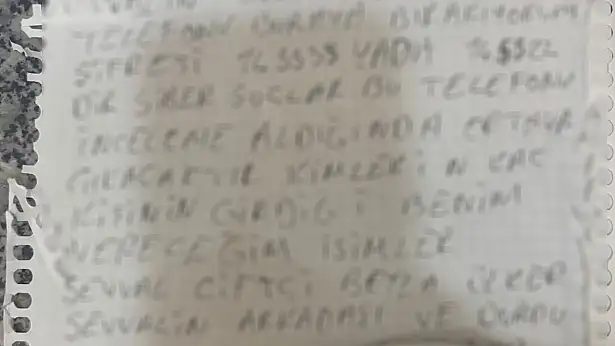 TELEFONU BURAYA BIRAKIYORUM
ŞİFRESİ YADA
DIR SİBER SUÇLAR BU TELEFONU
İNCELEME ALDIĞINDA ORTAYA
ÇIKACAKTIR KİMLERİN KAÇ
KİŞİNİN GİRDİĞİ BENİM
VERECEĞİM İSİMLER
ŞEVVAL ÇİFTÇİ İLKER
ŞEVVALİN ARKADAŞI VE